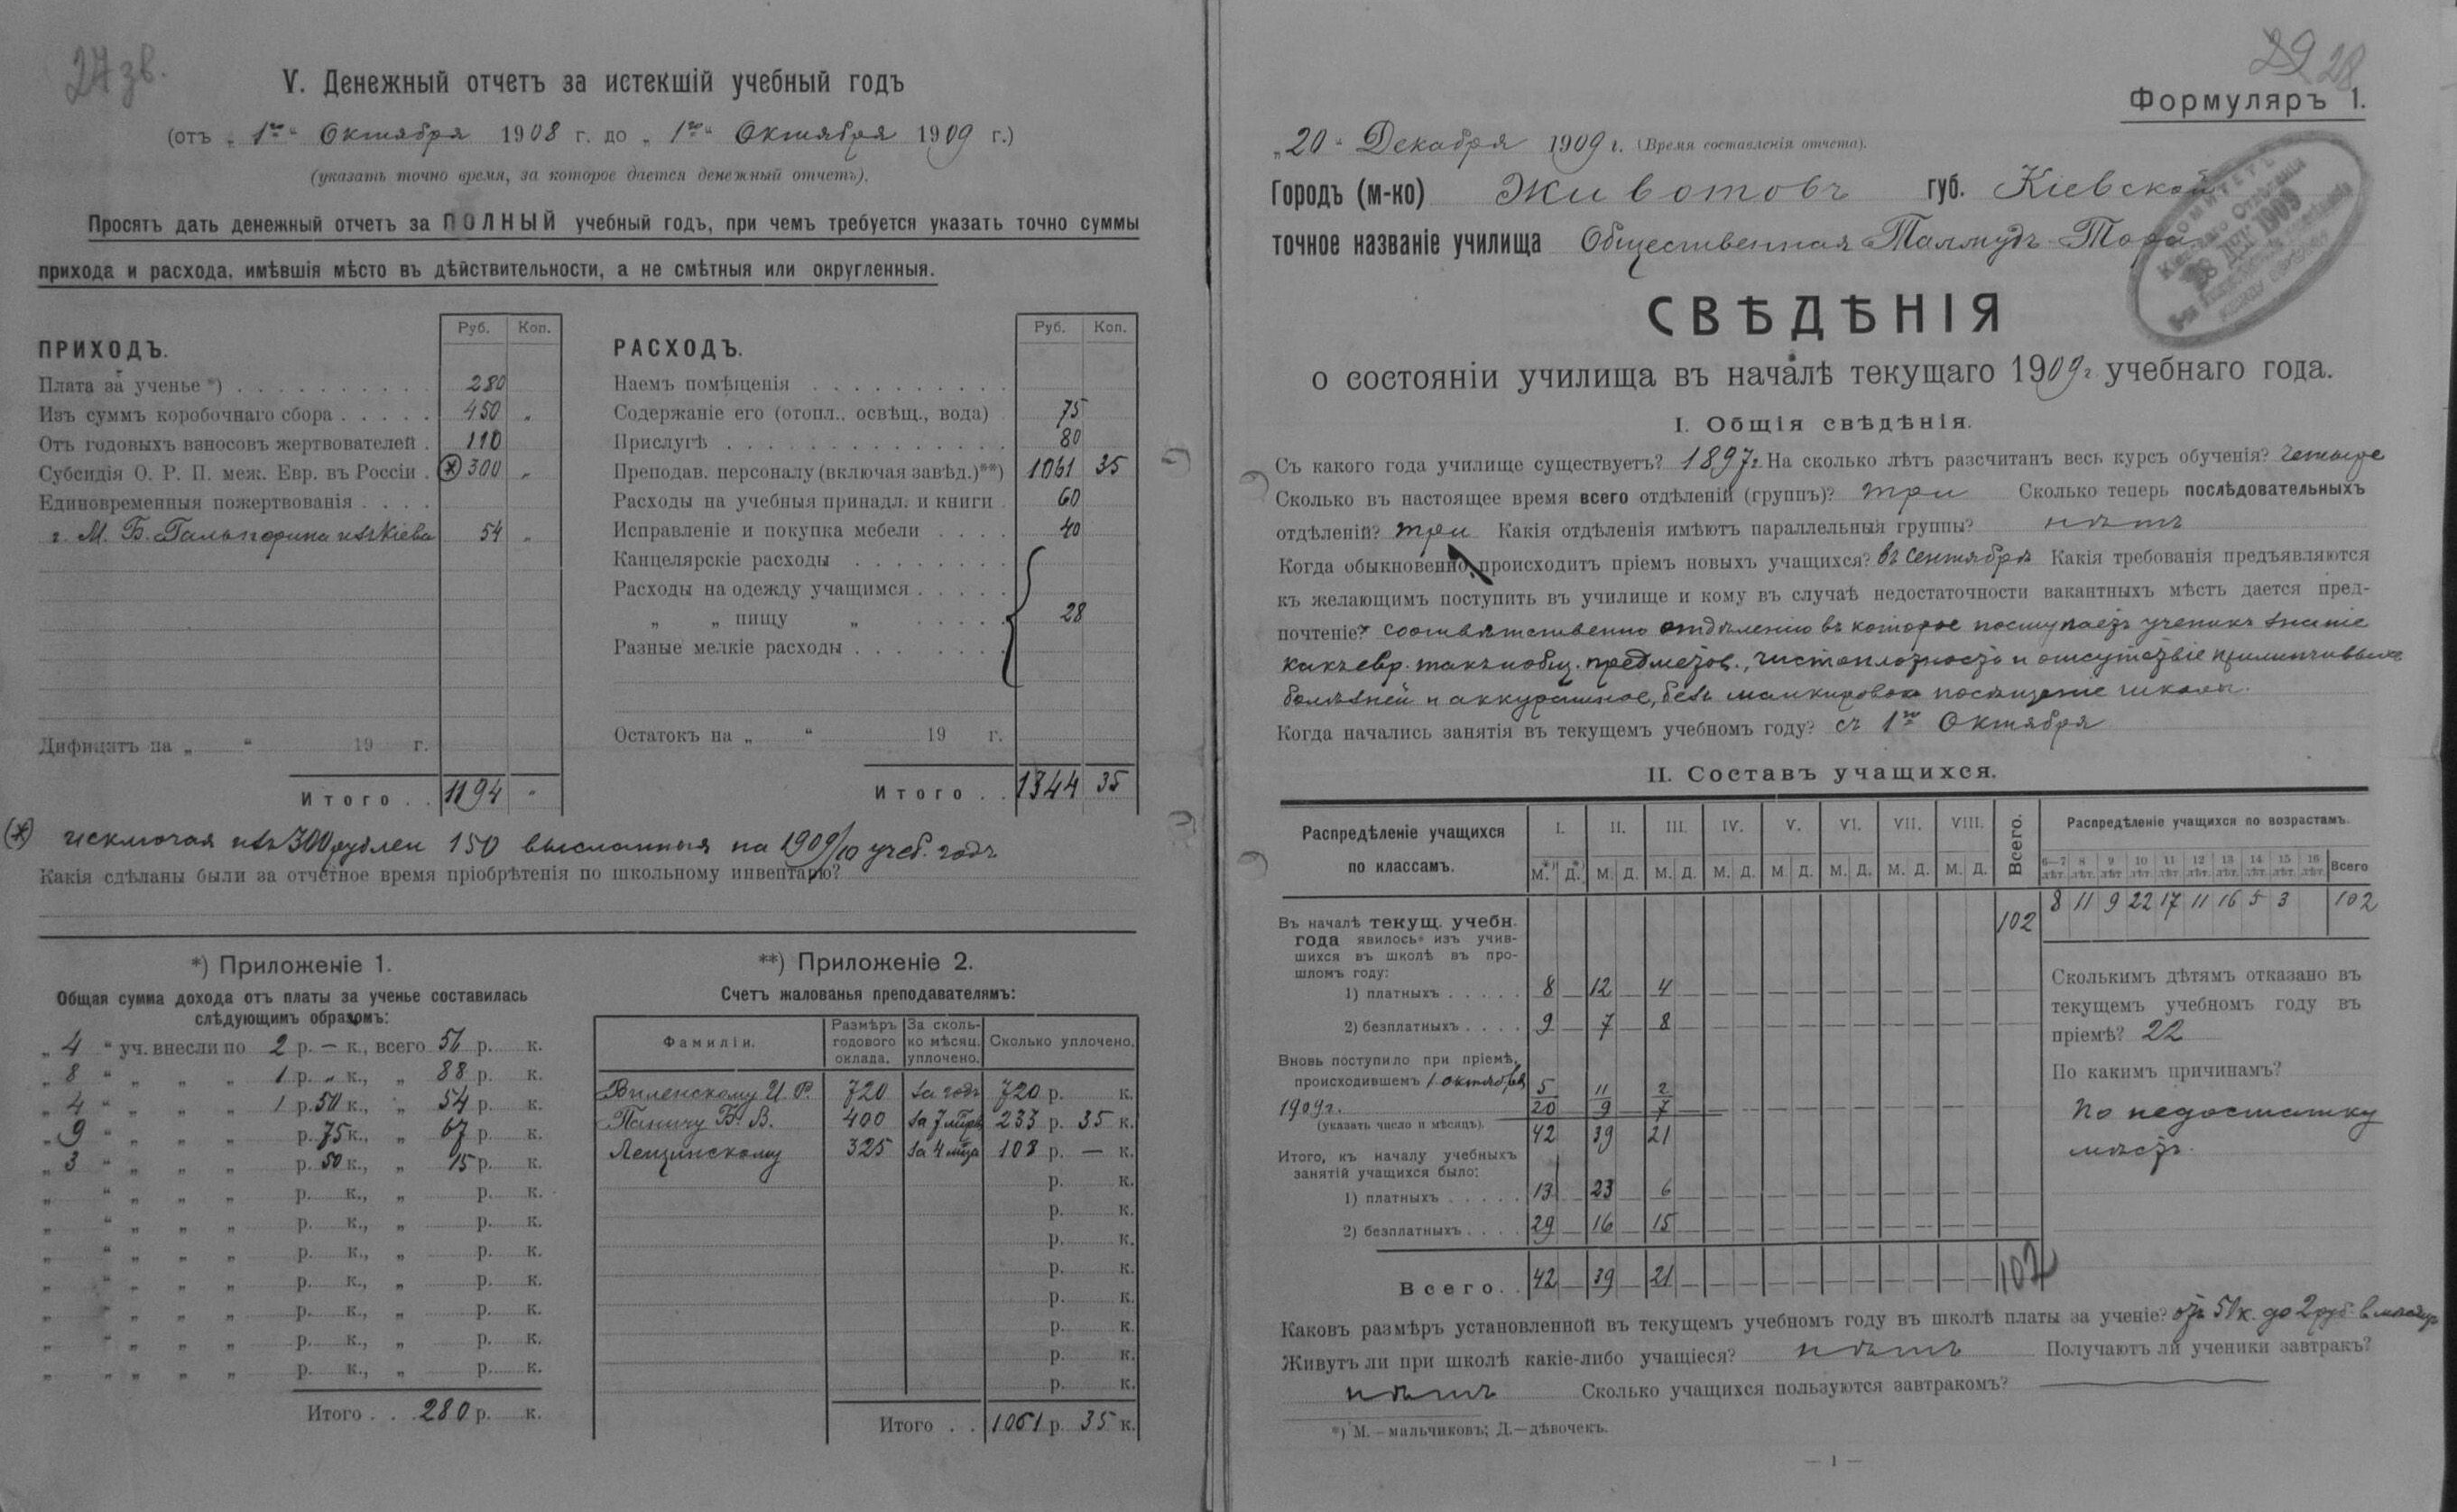 27 зв.
V. Денежный отчетъ за истекшій учебный годъ
(отъ „ 1го “ Октября 1908 г. до „ 1го “ Октября 1909 г.)
(указать точно время, за которое дается денежный отчетъ).
Просятъ дать денежный отчетъ за ПОЛНЫЙ учебный годъ, при чемъ требуется указать точно суммы
прихода и расхода, имѣвшія мѣсто въ дѣйствительности, а не смѣтныя или округленныя.
ПРИХОДЪ. Руб. Коп.
Плата за ученье *) 280
Изъ суммъ коробочнаго сбора 450 „
Отъ годовыхъ взносовъ жертвователей 110
Субсидія О. Р. П. меж. Евр. въ Россіи (*) 300 „
Единовременныя пожертвованія
г. М. Б. Гальперина изъ Кіева 54 „
Дифицитъ на „ “ 19 г.
Итого 1194 „
РАСХОДЪ. Руб. Коп.
Наемъ помѣщенія
Содержаніе его (отопл., освѣщ., вода) 75
Прислугѣ 80
Преподав. персоналу (включая завѣд.)**) 1061 35
Расходы на учебныя принадл. и книги 60
Исправленіе и покупка мебели 40
Канцелярскіе расходы
Расходы на одежду учащимся
„ „ пищу „ 28
Разные мелкіе расходы
Остатокъ на „ “ 19 г.
Итого 1344 35
(*) исключая изъ 300 рублей 150 высланныя на 1909/10 учеб. годъ
Какія сдѣланы были за отчетное время пріобрѣтенія по школьному инвентарю?
*) Приложеніе 1.
Общая сумма дохода отъ платы за ученье составилась
слѣдующимъ образомъ:
„ 4 “ уч. внесли по 2 р. — к., всего 56 р. к.
„ 8 “ „ „ „ 1 р. „ к., „ 88 р. к.
„ 4 “ „ „ „ 1 р. 50 к., „ 54 р. к.
„ 9 “ „ „ „ р. 75 к., „ 67 р. к.
„ 3 “ „ „ „ р. 50 к., „ 15 р. к.
„ “ „ „ „ р. к., „ р. к.
„ “ „ „ „ р. к., „ р. к.
„ “ „ „ „ р. к., „ р. к.
„ “ „ „ „ р. к., „ р. к.
„ “ „ „ „ р. к., „ р. к.
„ “ „ „ „ р. к., „ р. к.
„ „ „ „ „ р. к., „ р. к.
Итого . . . 280 р. к.
**) Приложеніе 2.
Счетъ жалованья преподавателямъ:
Фамиліи. Размѣръ годового оклада. За сколько мѣсяц. уплочено. Сколько уплочено.
Виленскому И. Р. 720 за годъ 720 р. к.
Паничу Б. В. 400 за 7 233 р. 35 к.
Лещинскому 325 за 4 мца 108 р. — к.
р. к.
р. к.
р. к.
р. к.
р. к.
р. к.
р. к.
р. к.
Итого . . 1061 р. 35 к.
29 28
Формуляръ 1.
„ 20 “ Декабря 1909 г. (Время составленія отчета).
Городъ (м-ко) Животовъ губ. Кіевской
точное названіе училища Общественная Талмудъ-Тора
КОМИТЕТЪ
Кіевскаго Отдѣленія
28 ДЕК 1909
СВѢДѢНІЯ
о состояніи училища въ началѣ текущаго 1909 г. учебнаго года.
I. Общія свѣдѣнія.
Съ какого года училище существуетъ? 1897 г. На сколько лѣтъ разсчитанъ весь курсъ обученія? четыре
Сколько въ настоящее время всего отдѣленій (группъ)? три Сколько теперь послѣдовательныхъ
отдѣленій? три Какія отдѣленія имѣютъ параллельныя группы? нѣтъ
Когда обыкновенно происходитъ пріемъ новыхъ учащихся? въ Сентябрѣ Какія требованія предъявляются
къ желающимъ поступить въ училище и кому въ случаѣ недостаточности вакантныхъ мѣстъ дается пред-
почтеніе? соотвѣтственно отдѣленію въ которое поступаетъ ученикъ знаніе
какъ евр. такъ и общ. предметов., чистоплотность и отсутствіе прилипчивыхъ
болѣзней и аккуратное, безъ манкировокъ посѣщеніе школы.
Когда начались занятія въ текущемъ учебномъ году? съ 1го Октября
II. Составъ учащихся.
Распредѣленіе учащихся по классамъ. I. II. III. IV. V. VI. VII. VIII. Всего.
М.*) Д.*) М. Д. М. Д. М. Д. М. Д. М. Д. М. Д. М. Д.
Распредѣленіе учащихся по возрастамъ.
6—7 лѣт. 8 лѣт. 9 лѣт. 10 лѣт. 11 лѣт. 12 лѣт. 13 лѣт. 14 лѣт. 15 лѣт. 16 лѣт. Всего
8 11 9 22 17 11 16 5 3 102
Въ началѣ текущ. учебн. 102
года явилось изъ учив-
шихся въ школѣ въ про-
шломъ году:
1) платныхъ 8 — 12 — 4 — — — — — — — — — — —
2) безплатныхъ 9 — 7 — 8 — — — — — — — — — — —
Вновь поступило при пріемѣ,
происходившемъ 1 октября 5 11 2
1909 г. 20 9 7
(указать число и мѣсяцъ). 42 39 21
Итого, къ началу учебныхъ
занятій учащихся было:
1) платныхъ 13 — 23 — 6 — — — — — — — — — — —
2) безплатныхъ 29 — 16 — 15 — — — — — — — — — — —
Всего . . 42 — 39 — 21 — — — — — — — — — — — 102
Сколькимъ дѣтямъ отказано въ
текущемъ учебномъ году въ
пріемѣ? 22
По какимъ причинамъ?
По недостатку
мѣстъ.
Каковъ размѣръ установленной въ текущемъ учебномъ году въ школѣ платы за ученіе? отъ 50 к. до 2 руб. в мѣсяц
Живутъ ли при школѣ какіе-либо учащіеся? нѣтъ Получаютъ ли ученики завтракъ?
нѣтъ Сколько учащихся пользуются завтракомъ? —
*) М.—мальчиковъ; Д.—дѣвочекъ.
— 1 —